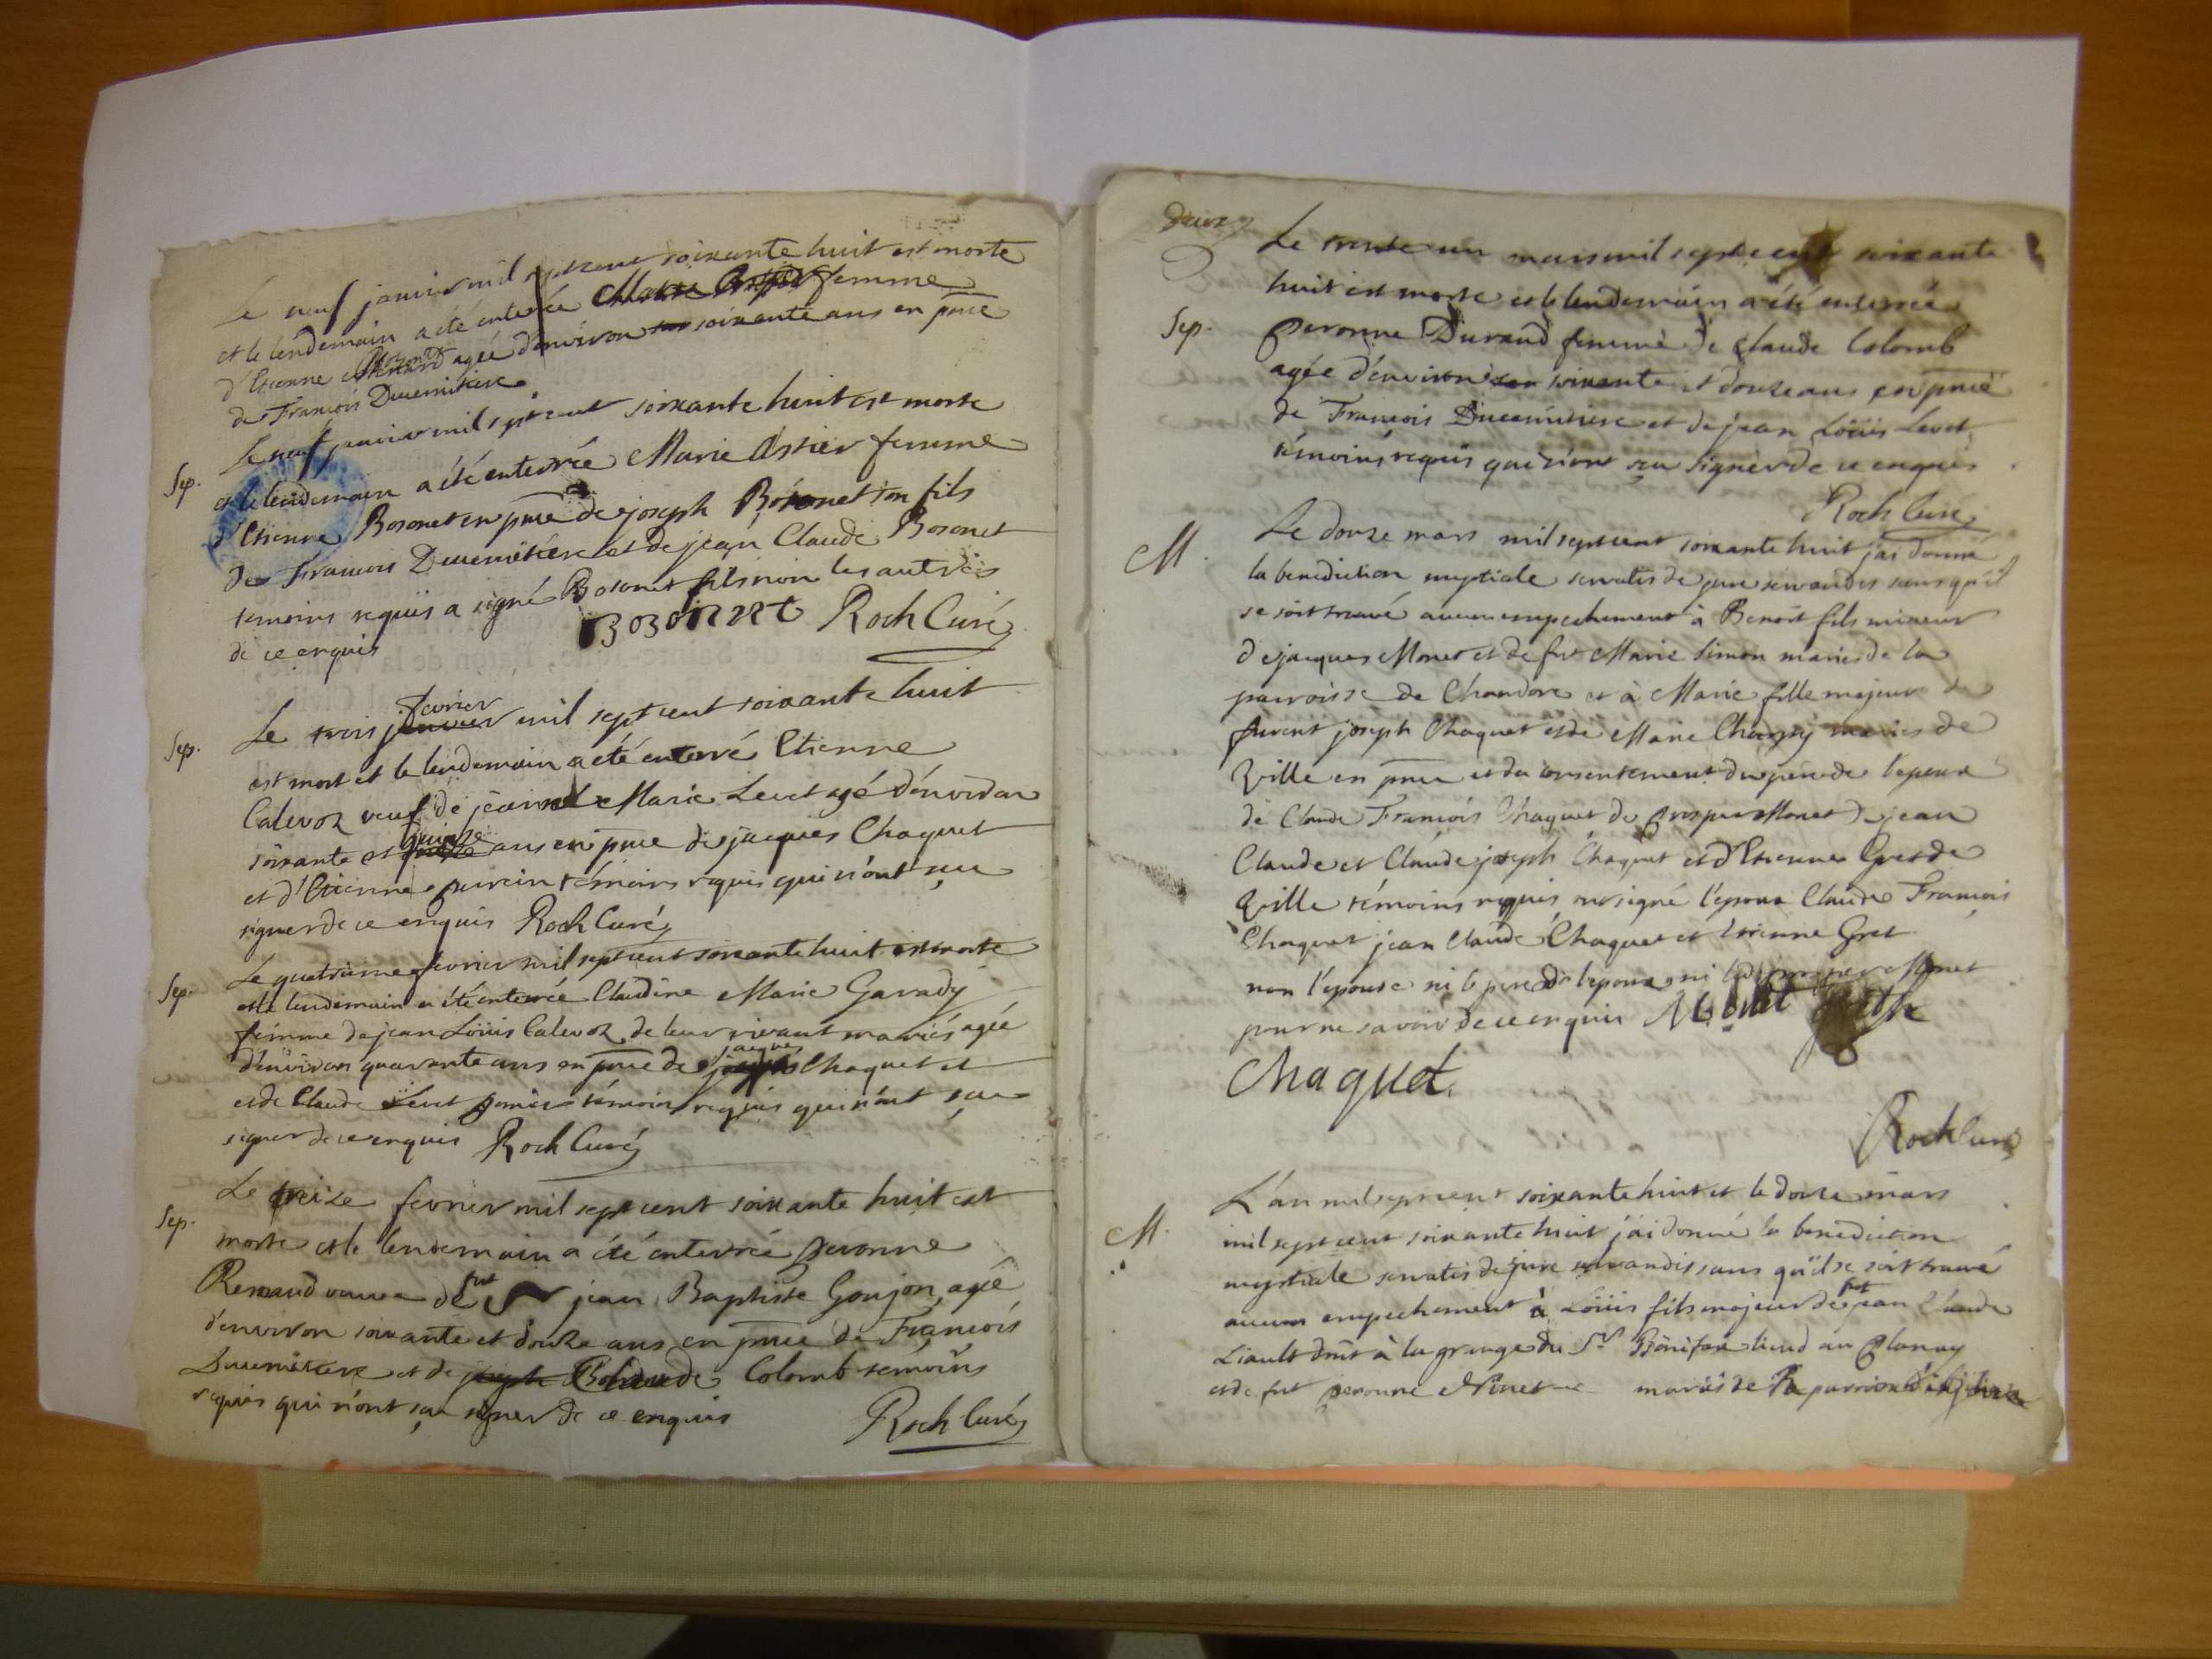 Le neuf janvier mil sept cent soixante huit est morte
et le lendemain a été enterrée Marie Astier femme
d'Etienne agée d'environ soixante ans en pnce
de François Ducimitiere
Le neuf janvier mil sept cent soixante huit est morte
Sep. et le lendemain a été enterrée Marie Astier femme
d'Etienne Bosonet en pnce de joseph Bosonet son fils
de François Ducimitiere et de jean Claude Bosonet
temoins requis a signé Bosonet fils non les autres
de ce enquis
Bozonnet Roch Curé
fevrier
Sep. Le trois janvier mil sept cent soixante huit
est mort et le lendemain a été enterré Etienne
Calevoz veuf de jeanne Marie Levet agé d'environ
quinze
soixante et ans en pnce de jacques Chaquet
et d'Etienne purcin témoins requis qui n'ont sçu
signer de ce enquis Roch Curé
Le quatrieme fevrier mil sept cent soixante huit est morte
Sep. et le lendemain a été enterrée Claudine Marie Gavady
femme de jean Loüis Calevoz de leur vivant mariés agée
jacques
d'environ quarante ans en pnce de joseph Chaquet et
et de Claude Levet témoins requis qui n'ont sçu
signer de ce enquis Roch Curé
Le treize fevrier mil sept cent soixante huit est
Sep. morte et le lendemain a été enterrée peronne
fut
Renaud veuve de jean Baptiste Goujon agé
d'environ soixante et douze ans en pnce de François
Ducimitiere et de joseph Colomb temoins
requis qui n'ont sçu signer de ce enquis
Roch Curé
deux
Le trente un mars mil sept cent soixante
huit est morte et le lendemain a été enterrée
Sep. peronne Durand femme de Claude Colomb
agée d'environ soixante et douze ans en pnce
de François Ducimitiere et de jean Loüis Levet
témoins requis qui n'ont sçu signer de ce enquis
Roch Curé
M. Le douze mars mil sept cent soixante huit j'ai donné
la benediction nuptiale servatis de jure servandis sans qu'il
se soit trouvé aucun empechement à Benoit fils mineur
de jacques Monet et de fut Marie Simon mariés de la
parroisse de Chandore et à Marie fille majeure de
furent joseph Chaquet et de Marie mariés de
Ville en pnce et du consentement du pere de l'epoux
de Claude François Chaquet de prosper Monet de jean
Claude et Claude joseph Chaquet et d'Etienne Gret de
Ville témoins requis ont signé l'epoux Claude François
Chaquet jean Claude Chaquet et Etienne Gret
non l'epouse ni le pere de l'epoux ni Monet
pour ne savoir de ce enquis Monet
Chaquet
Roch Curé
L'an mil sept cent soixante huit et le douze mars
M. mil sept cent soixante huit j'ai donné la benediction
nuptiale servatis de jure servandis sans qu'il se soit trouvé
fut
aucun empechement à Loüis fils majeur de jean Claude
Liault à la grange du Sr Bonifax au planay
et de fut peronne Ninet mariés de la parroisse